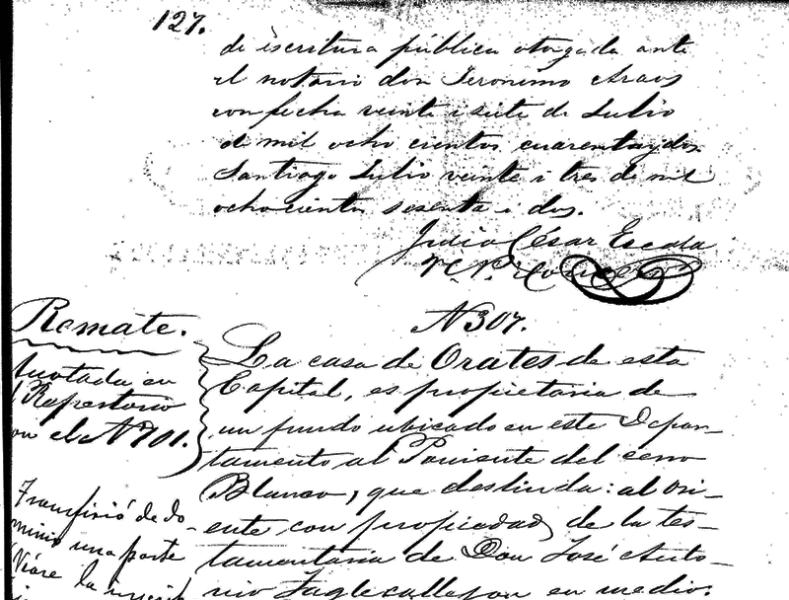 127.
de escritura pública otorgada ante
el notario don Jeronimo Araos
con fecha veinte i siete de Julio
de mil ocho cientos cuarenta y dos.
Santiago Julio veinte i tres de mil
ochocientos sesenta i dos.
Julio César Escala
N 307.
Remate.
Anotada en
el Repertorio
en el N 701.
Transfirió de do-
minio una parte
Véase la inscrip
La casa de Orates de esta
Capital, es propietaria de
un fundo ubicado en este Depar-
tamento al Poniente del cerro
Blanco, que deslinda: al Ori-
ente, con propiedad de la tes-
tamentaria de Don José Anto-
nio Tagle callejon en medio: